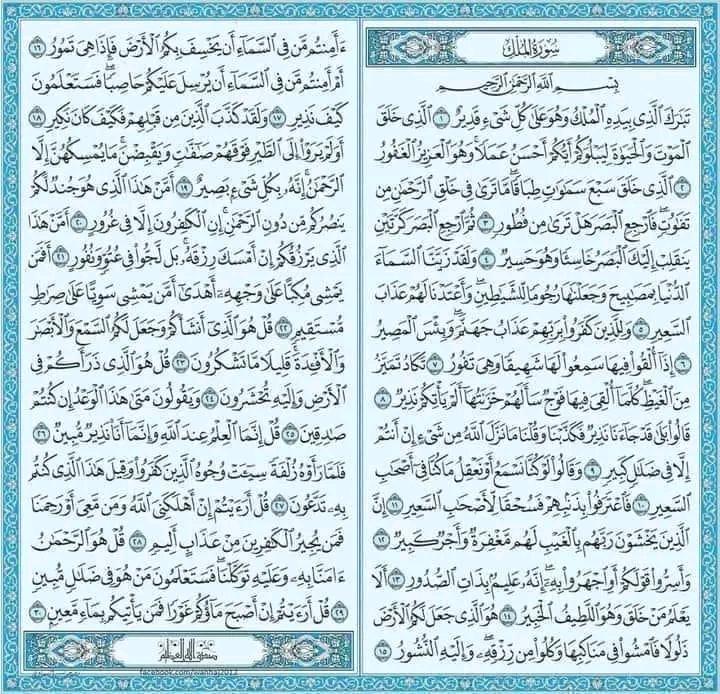 سُورَةُ المُلْكِ
بِسْمِ اللَّهِ الرَّحْمَٰنِ الرَّحِيمِ
تَبَٰرَكَ الَّذِي بِيَدِهِ الْمُلْكُ وَهُوَ عَلَىٰ كُلِّ شَيْءٍ قَدِيرٌ ١ الَّذِي خَلَقَ
الْمَوْتَ وَالْحَيَوٰةَ لِيَبْلُوَكُمْ أَيُّكُمْ أَحْسَنُ عَمَلًا وَهُوَ الْعَزِيزُ الْغَفُورُ
٢ الَّذِي خَلَقَ سَبْعَ سَمَٰوَٰتٍ طِبَاقًا مَّا تَرَىٰ فِي خَلْقِ الرَّحْمَٰنِ مِن
تَفَٰوُتٍ فَارْجِعِ الْبَصَرَ هَلْ تَرَىٰ مِن فُطُورٍ ٣ ثُمَّ ارْجِعِ الْبَصَرَ كَرَّتَيْنِ
يَنقَلِبْ إِلَيْكَ الْبَصَرُ خَاسِئًا وَهُوَ حَسِيرٌ ٤ وَلَقَدْ زَيَّنَّا السَّمَاءَ
الدُّنْيَا بِمَصَٰبِيحَ وَجَعَلْنَٰهَا رُجُومًا لِّلشَّيَٰطِينِ وَأَعْتَدْنَا لَهُمْ عَذَابَ
السَّعِيرِ ٥ وَلِلَّذِينَ كَفَرُوا بِرَبِّهِمْ عَذَابُ جَهَنَّمَ وَبِئْسَ الْمَصِيرُ
٦ إِذَا أُلْقُوا فِيهَا سَمِعُوا لَهَا شَهِيقًا وَهِيَ تَفُورُ ٧ تَكَادُ تَمَيَّزُ
مِنَ الْغَيْظِ كُلَّمَا أُلْقِيَ فِيهَا فَوْجٌ سَأَلَهُمْ خَزَنَتُهَا أَلَمْ يَأْتِكُمْ نَذِيرٌ ٨
قَالُوا بَلَىٰ قَدْ جَاءَنَا نَذِيرٌ فَكَذَّبْنَا وَقُلْنَا مَا نَزَّلَ اللَّهُ مِن شَيْءٍ إِنْ أَنتُمْ
إِلَّا فِي ضَلَٰلٍ كَبِيرٍ ٩ وَقَالُوا لَوْ كُنَّا نَسْمَعُ أَوْ نَعْقِلُ مَا كُنَّا فِي أَصْحَٰبِ
السَّعِيرِ ١٠ فَاعْتَرَفُوا بِذَنبِهِمْ فَسُحْقًا لِّأَصْحَٰبِ السَّعِيرِ ١١ إِنَّ
الَّذِينَ يَخْشَوْنَ رَبَّهُم بِالْغَيْبِ لَهُم مَّغْفِرَةٌ وَأَجْرٌ كَبِيرٌ ١٢
وَأَسِرُّوا قَوْلَكُمْ أَوِ اجْهَرُوا بِهِ إِنَّهُ عَلِيمٌ بِذَاتِ الصُّدُورِ ١٣ أَلَا
يَعْلَمُ مَنْ خَلَقَ وَهُوَ اللَّطِيفُ الْخَبِيرُ ١٤ هُوَ الَّذِي جَعَلَ لَكُمُ الْأَرْضَ
ذَلُولًا فَامْشُوا فِي مَنَاكِبِهَا وَكُلُوا مِن رِّزْقِهِ وَإِلَيْهِ النُّشُورُ ١٥
ءَأَمِنتُم مَّن فِي السَّمَاءِ أَن يَخْسِفَ بِكُمُ الْأَرْضَ فَإِذَا هِيَ تَمُورُ ١٦
أَمْ أَمِنتُم مَّن فِي السَّمَاءِ أَن يُرْسِلَ عَلَيْكُمْ حَاصِبًا فَسَتَعْلَمُونَ
كَيْفَ نَذِيرِ ١٧ وَلَقَدْ كَذَّبَ الَّذِينَ مِن قَبْلِهِمْ فَكَيْفَ كَانَ نَكِيرِ ١٨
أَوَلَمْ يَرَوْا إِلَى الطَّيْرِ فَوْقَهُمْ صَٰفَّٰتٍ وَيَقْبِضْنَ مَا يُمْسِكُهُنَّ إِلَّا
الرَّحْمَٰنُ إِنَّهُ بِكُلِّ شَيْءٍ بَصِيرٌ ١٩ أَمَّنْ هَٰذَا الَّذِي هُوَ جُندٌ لَّكُمْ
يَنصُرُكُم مِّن دُونِ الرَّحْمَٰنِ إِنِ الْكَٰفِرُونَ إِلَّا فِي غُرُورٍ ٢٠ أَمَّنْ هَٰذَا
الَّذِي يَرْزُقُكُمْ إِنْ أَمْسَكَ رِزْقَهُ بَل لَّجُّوا فِي عُتُوٍّ وَنُفُورٍ ٢١ أَفَمَن
يَمْشِي مُكِبًّا عَلَىٰ وَجْهِهِ أَهْدَىٰ أَمَّن يَمْشِي سَوِيًّا عَلَىٰ صِرَٰطٍ
مُّسْتَقِيمٍ ٢٢ قُلْ هُوَ الَّذِي أَنشَأَكُمْ وَجَعَلَ لَكُمُ السَّمْعَ وَالْأَبْصَٰرَ
وَالْأَفْئِدَةَ قَلِيلًا مَّا تَشْكُرُونَ ٢٣ قُلْ هُوَ الَّذِي ذَرَأَكُمْ فِي
الْأَرْضِ وَإِلَيْهِ تُحْشَرُونَ ٢٤ وَيَقُولُونَ مَتَىٰ هَٰذَا الْوَعْدُ إِن كُنتُمْ
صَٰدِقِينَ ٢٥ قُلْ إِنَّمَا الْعِلْمُ عِندَ اللَّهِ وَإِنَّمَا أَنَا نَذِيرٌ مُّبِينٌ ٢٦
فَلَمَّا رَأَوْهُ زُلْفَةً سِيئَتْ وُجُوهُ الَّذِينَ كَفَرُوا وَقِيلَ هَٰذَا الَّذِي كُنتُم
بِهِ تَدَّعُونَ ٢٧ قُلْ أَرَءَيْتُمْ إِنْ أَهْلَكَنِيَ اللَّهُ وَمَن مَّعِيَ أَوْ رَحِمَنَا
فَمَن يُجِيرُ الْكَٰفِرِينَ مِنْ عَذَابٍ أَلِيمٍ ٢٨ قُلْ هُوَ الرَّحْمَٰنُ
ءَامَنَّا بِهِ وَعَلَيْهِ تَوَكَّلْنَا فَسَتَعْلَمُونَ مَنْ هُوَ فِي ضَلَٰلٍ مُّبِينٍ
٢٩ قُلْ أَرَءَيْتُمْ إِنْ أَصْبَحَ مَاؤُكُمْ غَوْرًا فَمَن يَأْتِيكُم بِمَاءٍ مَّعِينٍ ٣٠
صدق الله العظيم
facebook.com/wanhaj2012